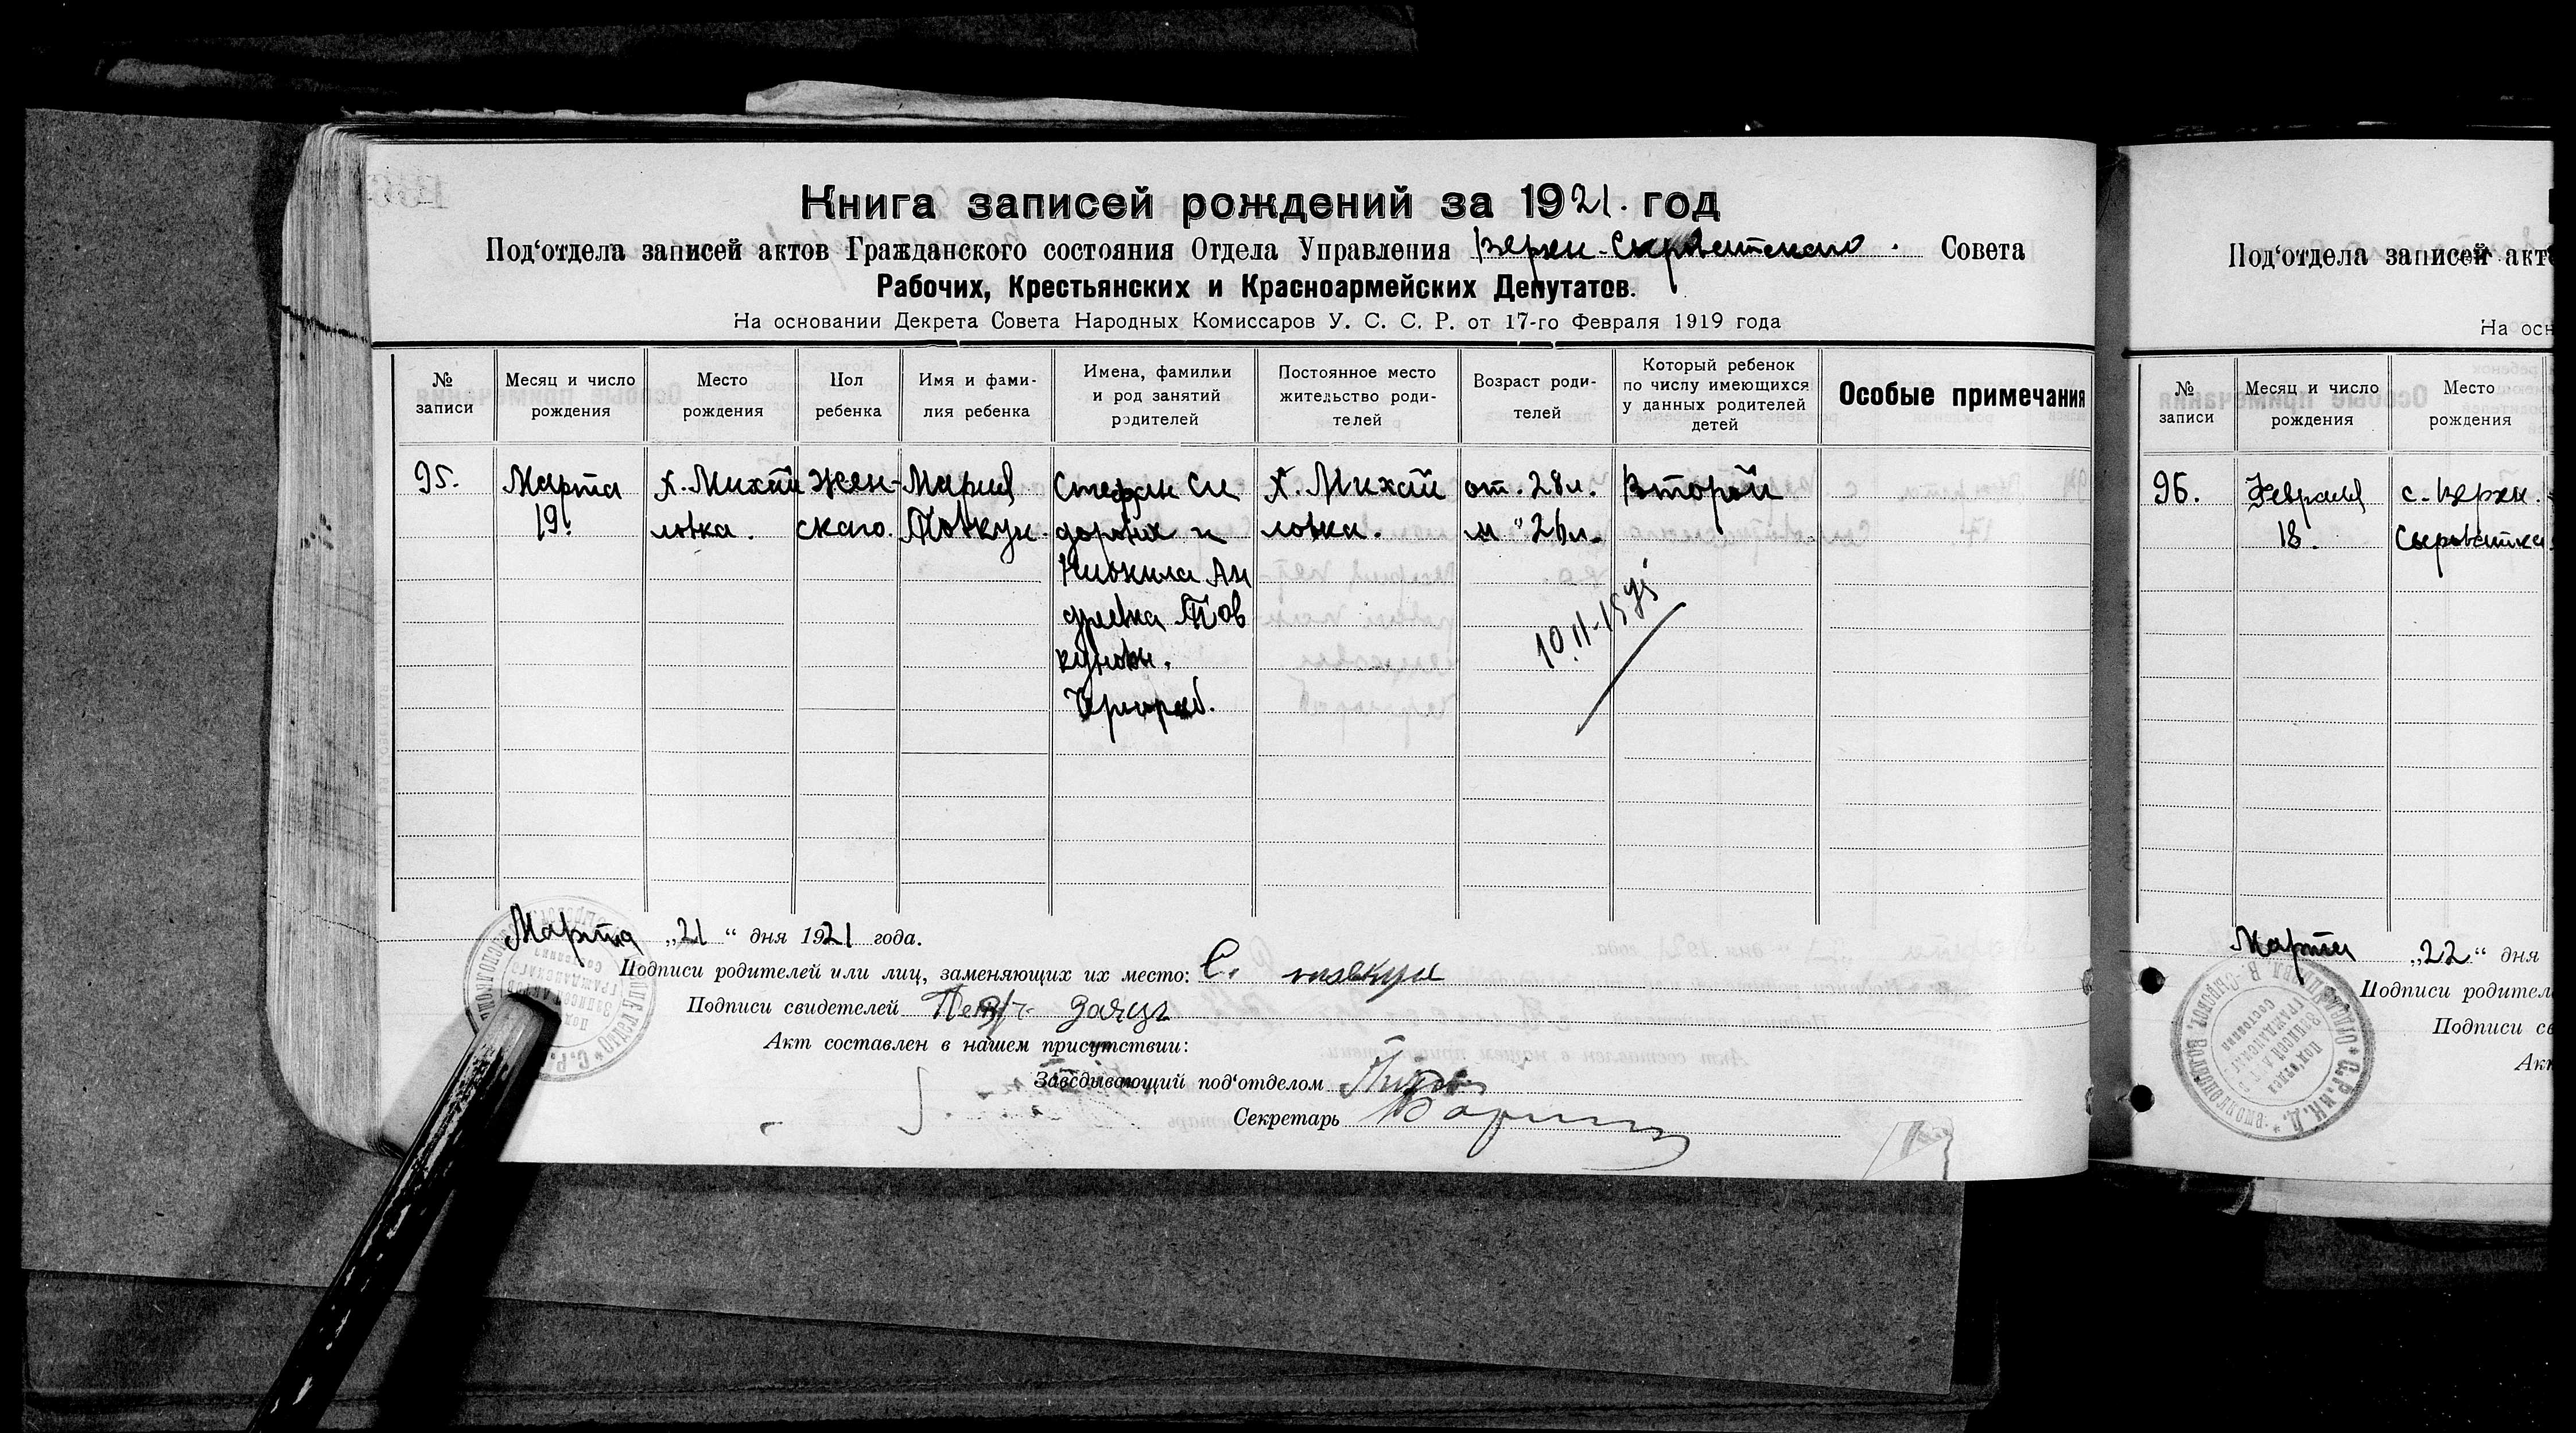 Книга записей рождений за 1921. год
Под‘отдела записей актов Гражданского состояния Отдела Управления Верхн-Сыроватского. Совета
Рабочих, Крестьянских и Красноармейских Депутатов.
На основании Декрета Совета Народных Комиссаров У. С. С. Р. от 17-го Февраля 1919 года
№ записи
Месяц и число рождения
Место рождения
Пол ребенка
Имя и фами-
лия ребенка
Имена, фамилии
и род занятий
родителей
Постоянное место
жительство роди-
телей
Возраст роди-
телей
Который ребенок
по числу имеющихся
у данных родителей
детей
Особые примечания
95.
Марта
19.
х. Михай
ловка.
жен-
скаго.
Мария
Товкун.
Стефан Си
доров и
Андреева Тов
куновы.
Х. Михай
ловка.
от. 28 л.
м " 26 л.
Второй
Марта „21“ дня 1921 года.
Подписи родителей или лиц, заменяющих их место: С. товкун
Подписи свидетелей Петр Заяцъ
Акт составлен в нашем присутствии:
Заведывающий под‘отделом
Секретарь
Под‘отдела записей акт
На осн
№ записи
Месяц и число рождения
Место рождения
96.
Февраля
18.
с. Верхн.
Сыроватка
Марта „22“ дня
Подписи родител
Подписи св
Ак